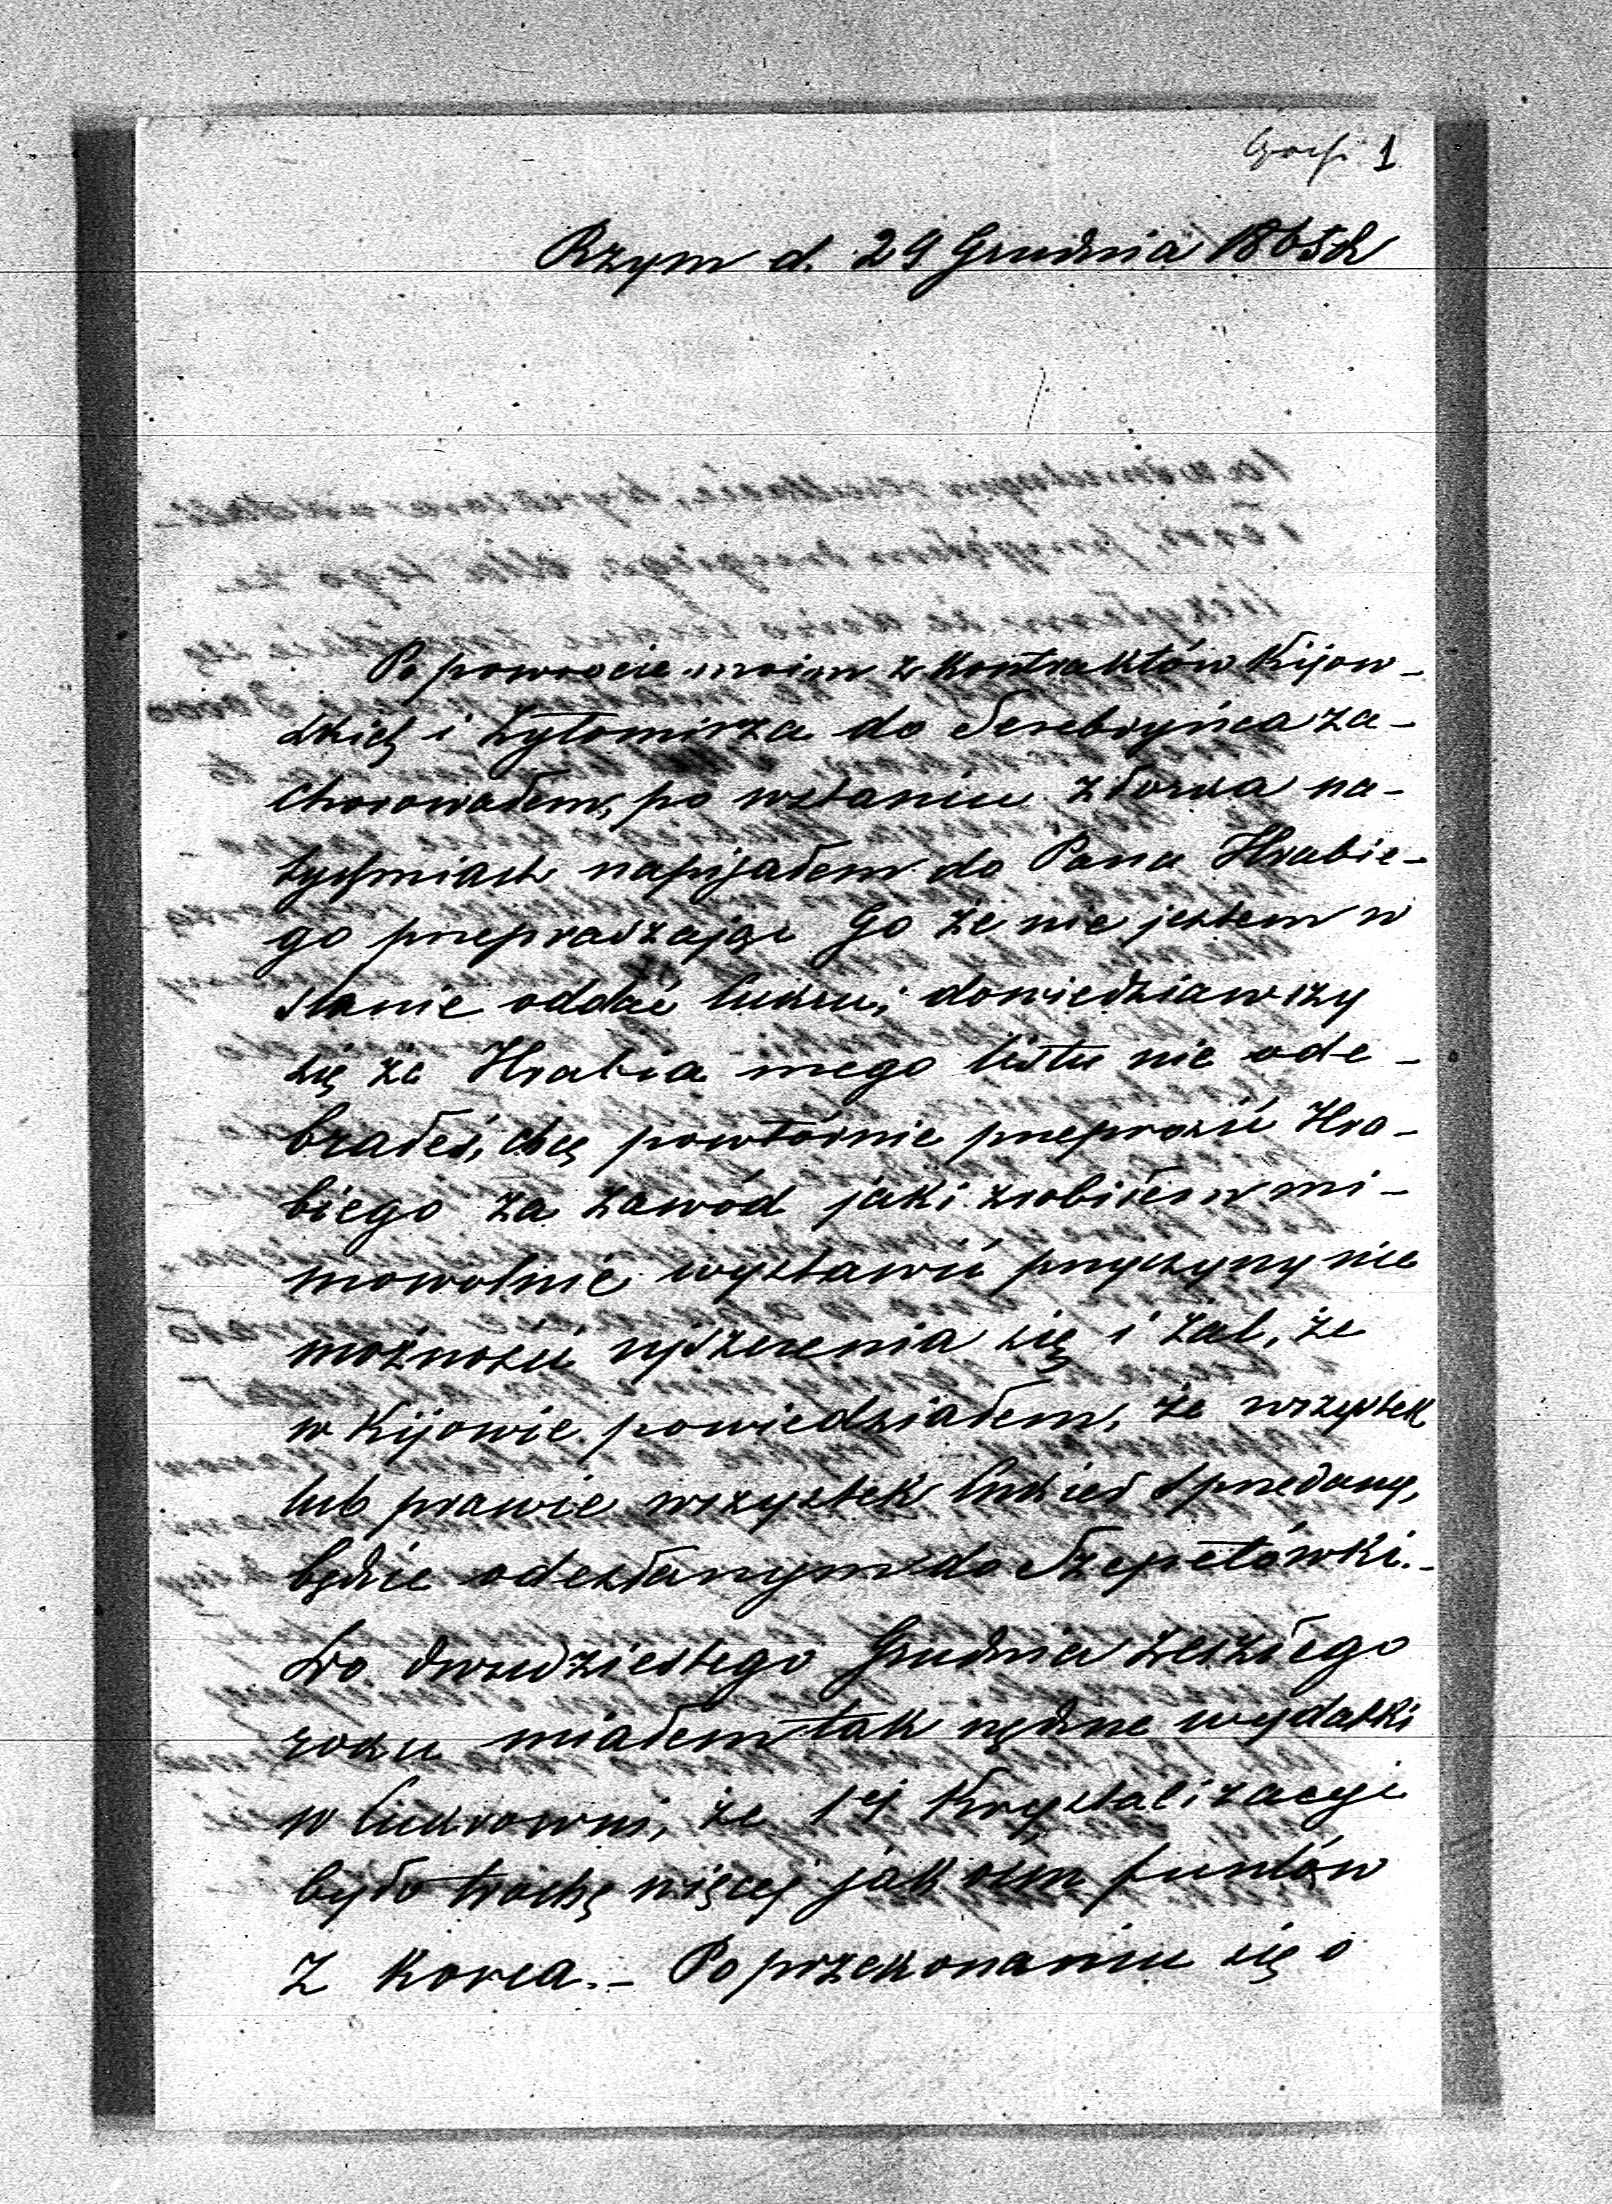 1
Rzym d. 29 Grudnia 1865 r
Po powrocie moim z Kontraktów Kijow-
skich i Żytomirza do Serebryńca za-
chorowałem, po wstaniu z łorka na-
tychmiast napisałem do Pana Hrabie-
go przepraszając Go że nie jestem w
stanie oddać Cukru; dowiedziawszy
się że Hrabia mego listu nie ode-
brałeś, chcę powtórnie przeprosić Hra-
biego za zawód jaki zrobiłem mi-
mowolnie wystawić przyczyny nie
możności uiszczenia się i żal, że
w Kijowie powiedziałem, że wszystek
lub prawie wszystek Cukier sprzedany,
będzie odesłanym do Szepetówki.-
Do dwudziestego Grudnia zeszłego
roku miałem tak nędzne wydatki
w Cukrowni, że 1ej Krystalizacyi
było trochę więcej jak osm funtów
z korca.- Po przekonaniu się o